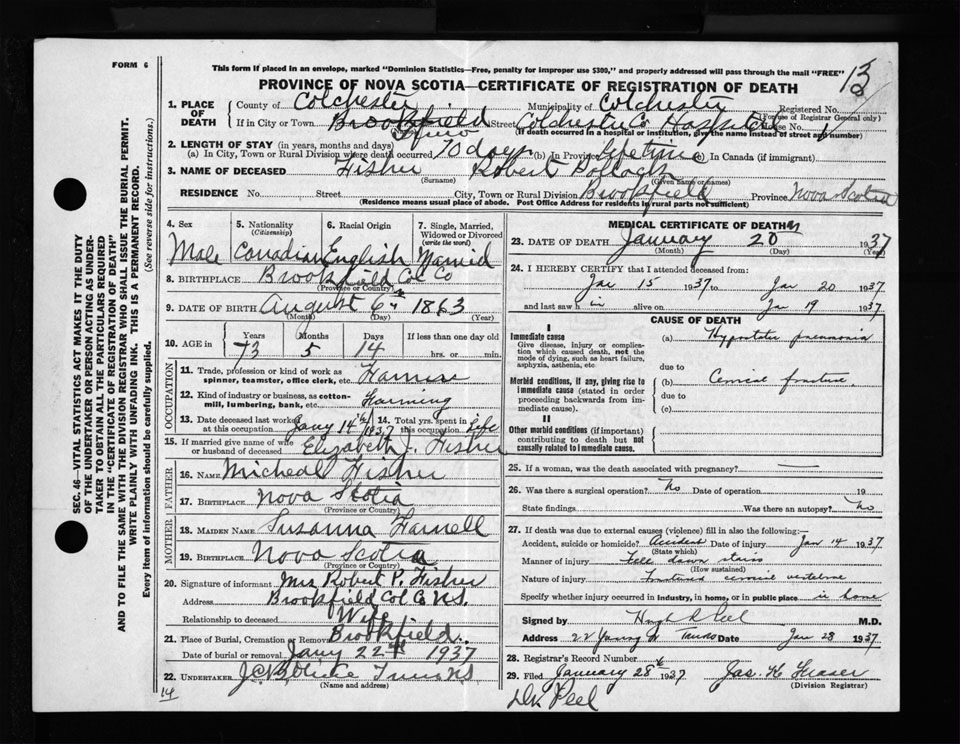 FORM 6
This form if placed in an envelope, marked "Dominion Statistics—Free, penalty for improper use $300," and properly addressed will pass through the mail "FREE"
13
PROVINCE OF NOVA SCOTIA—CERTIFICATE OF REGISTRATION OF DEATH
SEC. 46—VITAL STATISTICS ACT MAKES IT THE DUTY
OF THE UNDERTAKER OR PERSON ACTING AS UNDER-
TAKER TO OBTAIN ALL THE PARTICULARS REQUIRED
IN THE "CERTIFICATE OF REGISTRATION OF DEATH"
AND TO FILE THE SAME WITH THE DIVISION REGISTRAR WHO SHALL ISSUE THE BURIAL PERMIT.
WRITE PLAINLY WITH UNFADING INK. THIS IS A PERMANENT RECORD.
Every item of information should be carefully supplied. (See reverse side for instructions.)
1. PLACE OF DEATH County of Colchester Municipality of Colchester Registered No.
(For use of Registrar General only)
If in City or Town Brookfield Truro Street Colchester Co Hospital House No.
(If death occurred in a hospital or institution, give the name instead of street and number)
2. LENGTH OF STAY (in years, months and days)
(a) In City, Town or Rural Division where death occurred 70 days (b) In Province lifetime (c) In Canada (if immigrant)
3. NAME OF DECEASED Fisher Robert
(Surname) (Given name or names)
RESIDENCE No. Street City, Town or Rural Division Brookfield Province Nova Scotia
(Residence means usual place of abode. Post Office Address for residents in rural parts not sufficient)
4. Sex Male
5. Nationality (Citizenship) Canadian
6. Racial Origin English
7. Single, Married, Widowed or Divorced (write the word) Married
8. BIRTHPLACE Brookfield Col Co
(Province or Country)
9. DATE OF BIRTH August 6th 1863
(Month) (Day) (Year)
10. AGE in Years 73 Months 5 Days 14 If less than one day old
hrs. or min.
OCCUPATION
11. Trade, profession or kind of work as spinner, teamster, office clerk, etc. Farmer
12. Kind of industry or business, as cotton-mill, lumbering, bank, etc. Farming
13. Date deceased last worked at this occupation Jany 14th 1937
14. Total yrs. spent in this occupation Life
15. If married give name of wife or husband of deceased Elizabeth J. Fisher
FATHER
16. NAME Micheal Fisher
17. BIRTHPLACE Nova Scotia
(Province or Country)
MOTHER
18. MAIDEN NAME Susanna
19. BIRTHPLACE Nova Scotia
(Province or Country)
20. Signature of informant Mrs Robert P. Fisher
Address Brookfield Col Co N.S.
Relationship to deceased Wife
21. Place of Burial, Cremation or Removal Brookfield.
Date of burial or removal Jany 22nd 1937
22. UNDERTAKER Truro NS
(Name and address)
14
MEDICAL CERTIFICATE OF DEATH
23. DATE OF DEATH January 20th 1937
(Month) (Day) (Year)
24. I HEREBY CERTIFY that I attended deceased from:
Jan 15 1937 to Jan 20 1937
and last saw him alive on Jan 19 1937
CAUSE OF DEATH
I
Immediate cause
Give disease, injury or complication which caused death, not the mode of dying, such as heart failure, asphyxia, asthenia, etc
(a) Hypostatic pneumonia
due to
Morbid conditions, if any, giving rise to immediate cause (stated in order proceeding backwards from immediate cause).
(b) Cervical fracture
due to
(c)
II
Other morbid conditions (if important) contributing to death but not causally related to immediate cause.
25. If a woman, was the death associated with pregnancy?
26. Was there a surgical operation? No Date of operation 19
State findings Was there an autopsy? No
27. If death was due to external causes (violence) fill in also the following:—
Accident, suicide or homicide? Accident Date of injury Jan 14 1937
(State which)
Manner of injury Fell down stairs
(How sustained)
Nature of injury Fractured cervical vertebrae
Specify whether injury occurred in industry, in home, or in public place in home
Signed by Hugh R Peel M.D.
Address 22 Young St Truro Date Jan 28 1937
28. Registrar's Record Number
29. Filed January 28th 1937 Jas. H. Fraser
(Division Registrar)
Dr. Peel